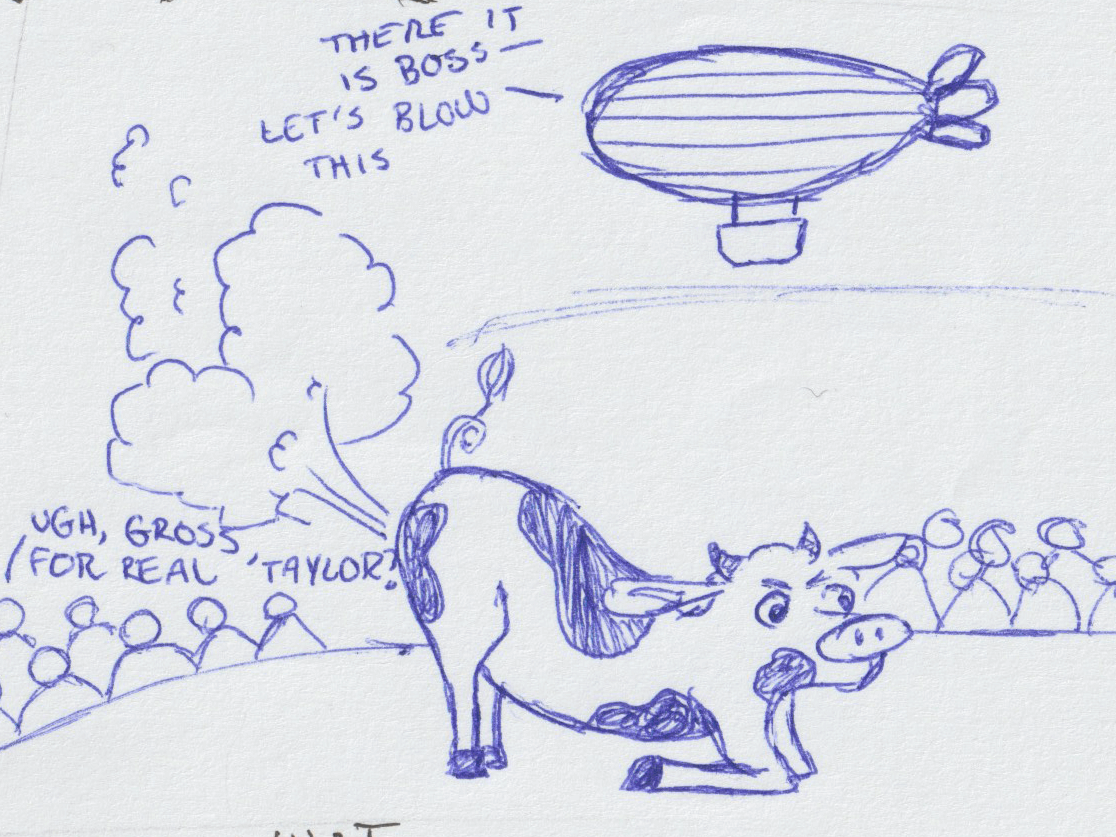 THERE IT
IS BOSS
LET'S BLOW
THIS
UGH, GROSS,
FOR REAL 'TAYLOR?